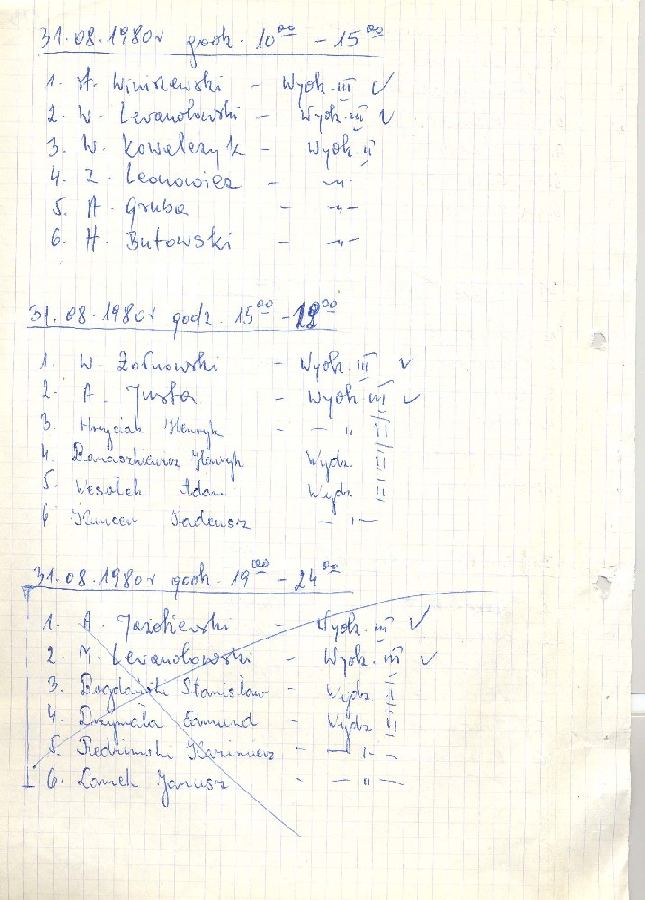 31.08.1980r godz. 10⁰⁰ - 15⁰⁰
1. A. Winiszewski - Wydz. III ✓
2. W. Lewandowski - Wydz. III ✓
3. W. Kowalczyk - Wydz II
4. Z. Leonowicz - -"-
5. A. Gruba - -"-
6. H. Butowski - -"-
31.08.1980r godz. 15⁰⁰ - 19⁰⁰
1. W. Żołnowski - Wydz. III ✓
2. A. Justa - Wydz. III ✓
3. Henryk - - " -
4. Henryk Wydz. II
5. Adam Wydz II
6 Tadeusz - " -
31.08.1980r godz. 19⁰⁰ - 24⁰⁰
1. A. - Wydz. III ✓
2 M. Lewandowski - Wydz. III ✓
3. Bogdański Stanisław - Wydz II
4. Drzymała Edmund - Wydz II
5. Kazimierz - - " -
6. Janusz - - " -